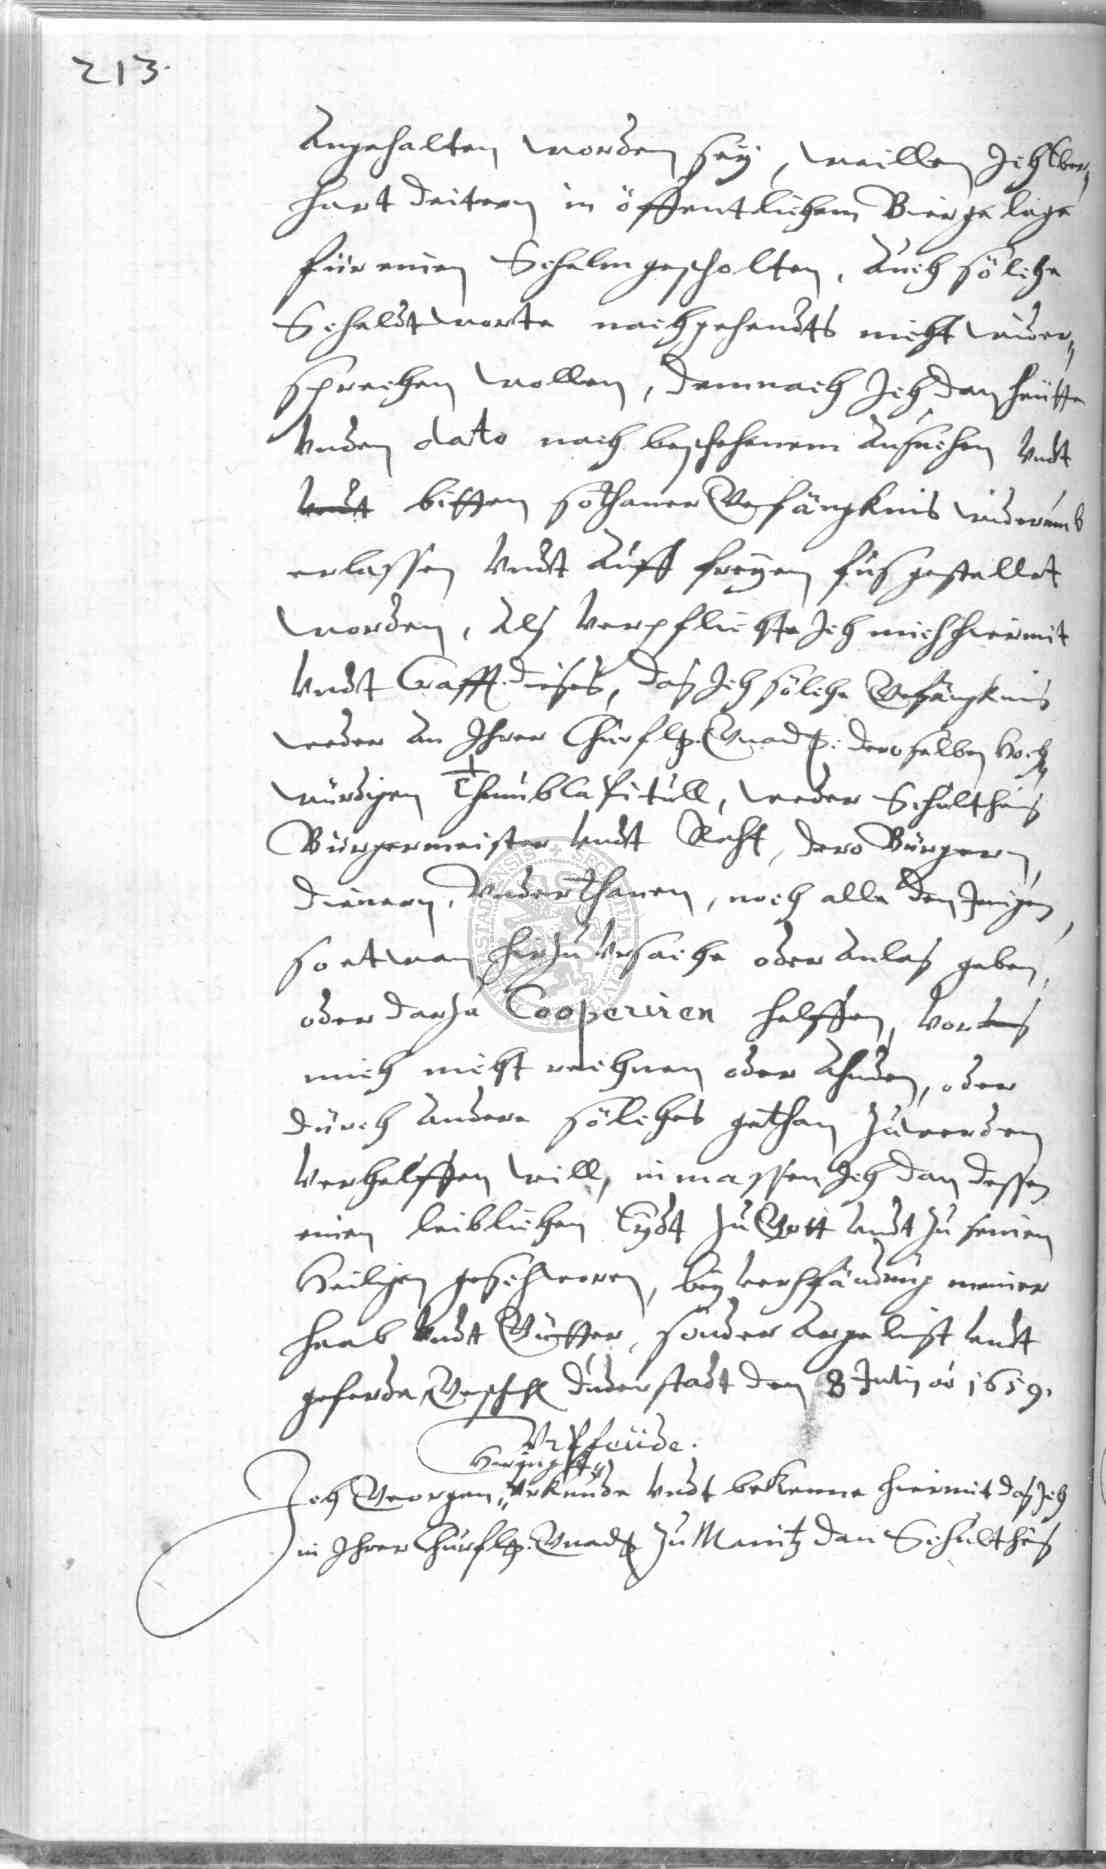 213.
Angehalten worden sey, weillen Ich Eber„
hart Deitern in öffentlichem Biergelage
für einen Schelm gescholten, Auch sölche
Scheldtworte nachgehendts nicht wider„
sprechen wollen, demnach Ich dan heutte
Vnden dato nach beschehenem Ansuchen Vndt
Vndt bitten sothaner Gefängknis widerumb
erlassen Vndt Auff freyen fus gestellet
worden, Als Verpflichte Ich mich hiermit
Vndt Crafft dieses, das Ich sölche Gefängknis
weder An Ihrer Churfl. Gnad. deroselben Hoch„
würdigen Thumbkapitull, weder Schultheis
Bürgermeister Vndt Raht, dero Bürgern,
Dienern, Vnderthanen, noch alle den Jenigen,
so etwan hirzu Vrsache oder Anlas geben,
oder darzu Cooperiren helffen,
mich nicht rechnen oder Ahnden, oder
durch Andere sölches gethan zu werden
Verhelffen will, inmassen Ich dan dessen
einen leiblichen Eydt zu Gott Vndt zu seinen
Heiligen geschworen, bey verpfändung meiner
haab Vndt Gütter, sonder Argelist Vndt
geferde, Geschehen Duderstadt den 8 Julij ao 1659.
Vrpfeüde.
Ich Georgen Vrkunde Vndt bekenne hiermit das Ich
in Ihrer Churfl. Gnad. zu Maintz dan Schultheis